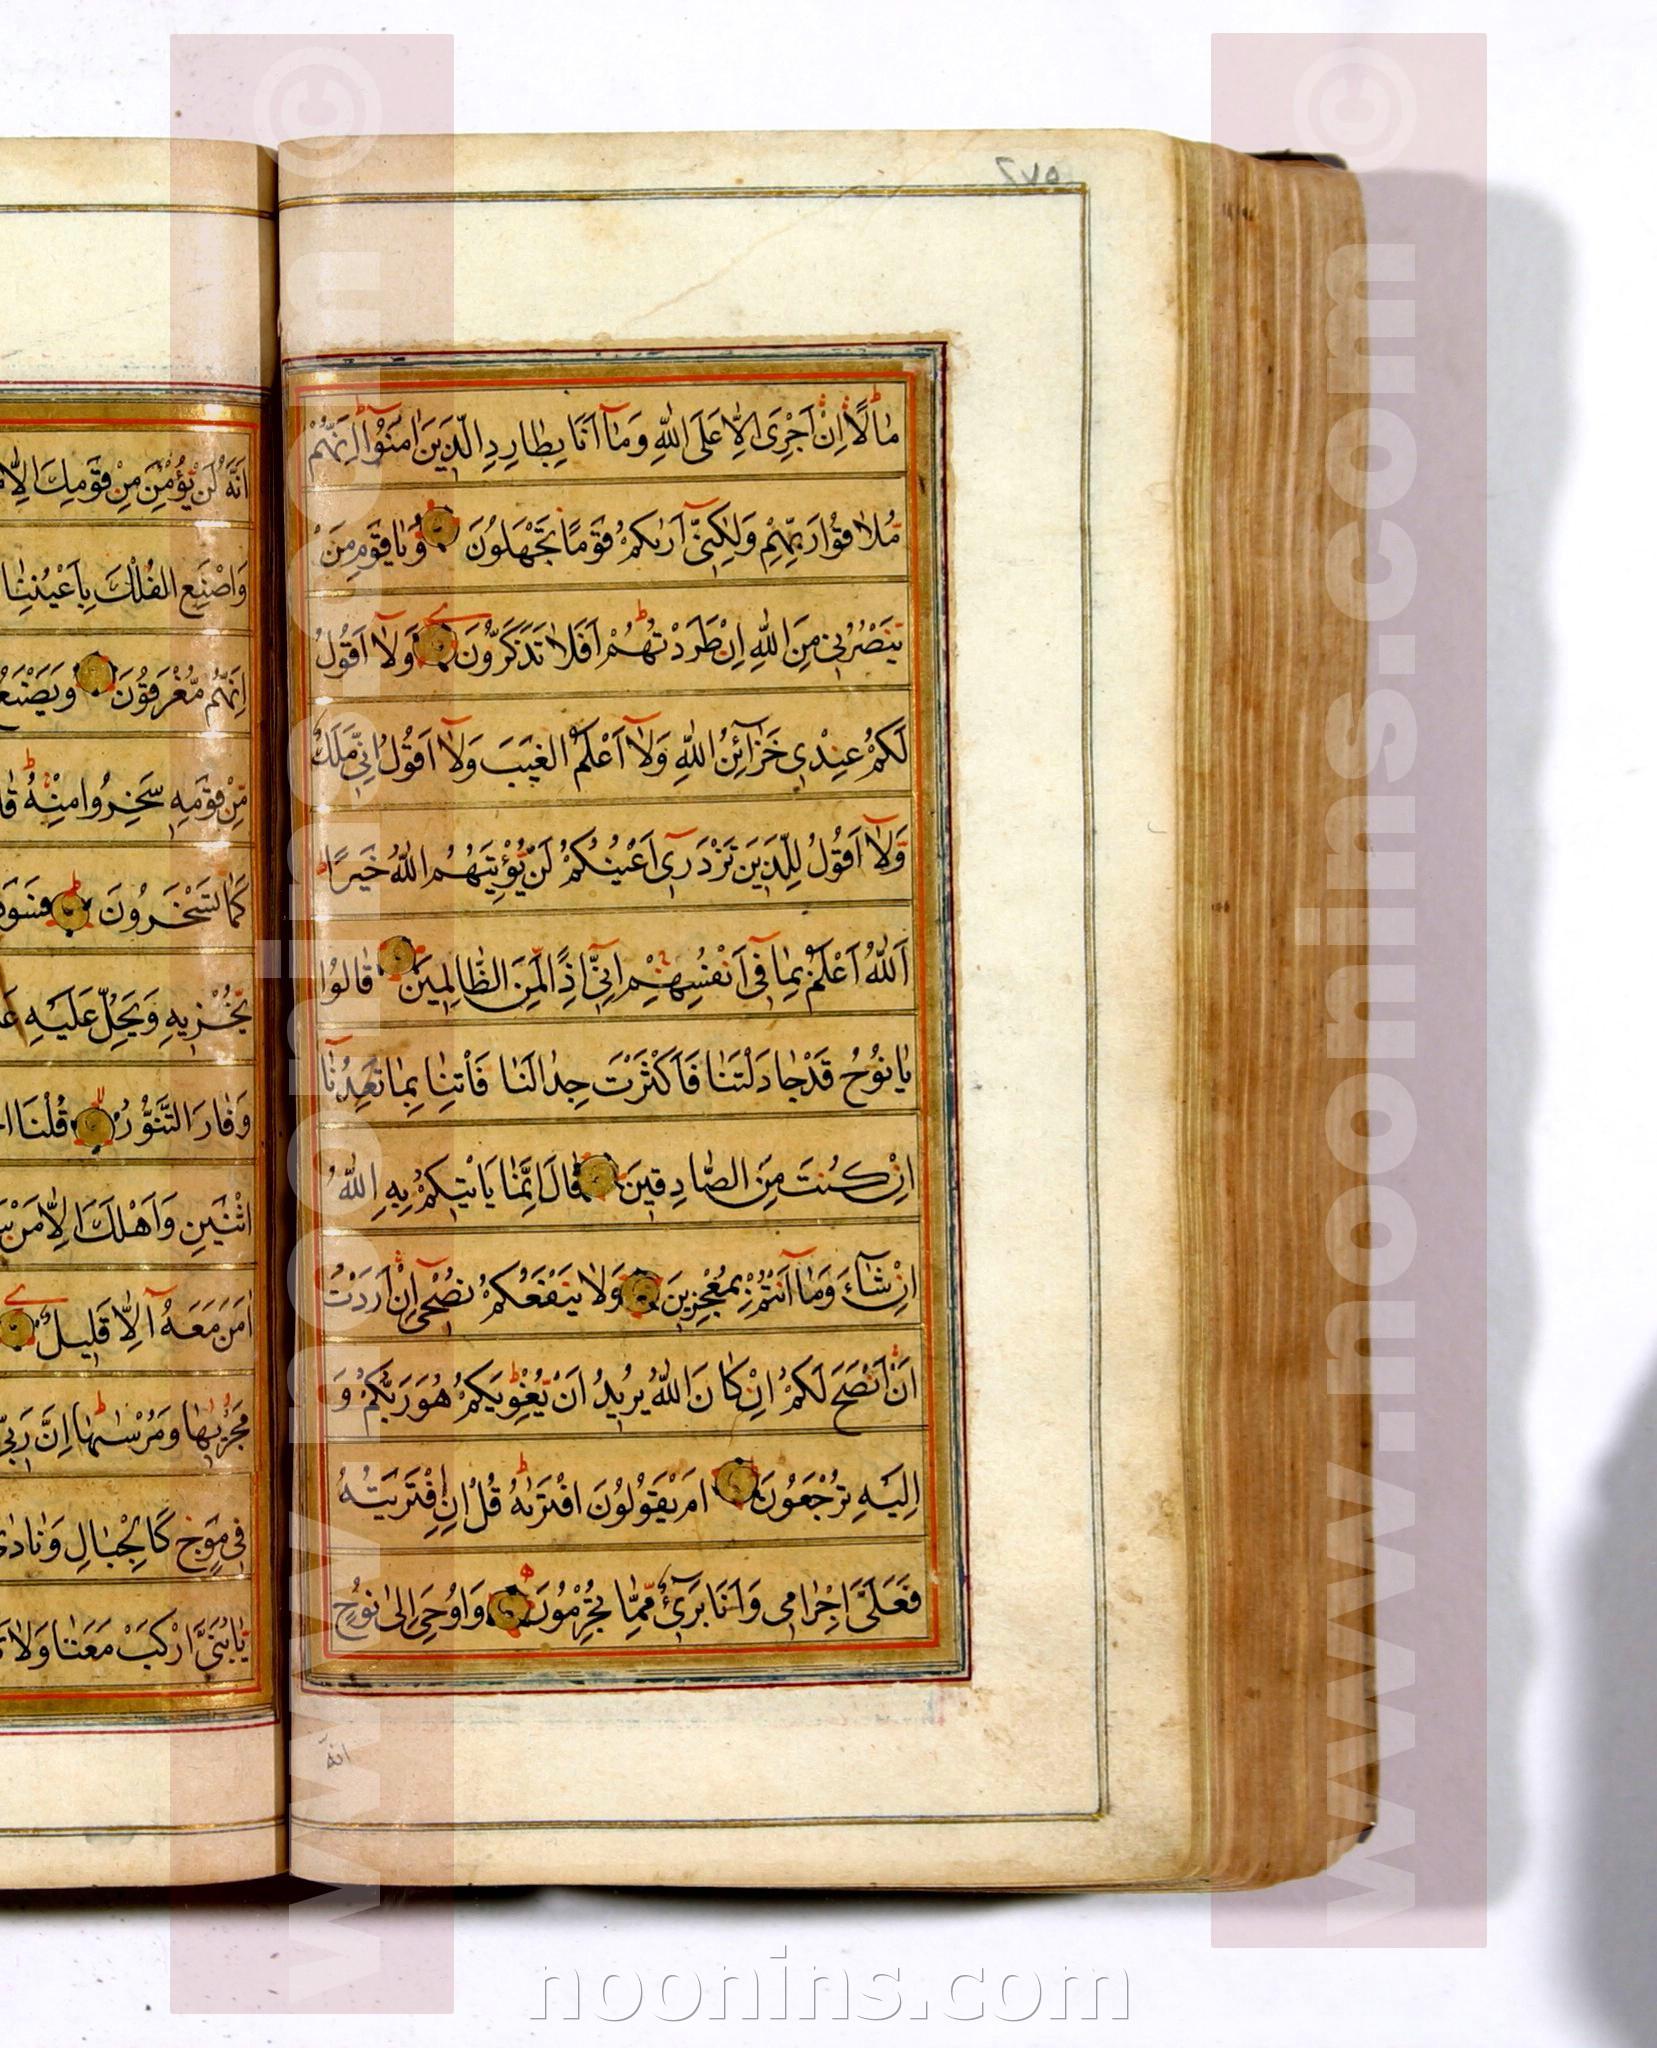 ۲۷۵
مٰالًا اِنْ اَجْرِيَ اِلّٰا عَلَى اللّٰهِ وَمٰٓا اَنَا بِطٰارِدِ الَّذِينَ اٰمَنُوٓا اِنَّهُمْ
مُلٰاقُوا رَبِّهِمْ وَلٰكِنِّٓي اَرٰيكُمْ قَوْمًا تَجْهَلُونَ وَيٰا قَوْمِ مَنْ
يَنْصُرُنِي مِنَ اللّٰهِ اِنْ طَرَدْتُهُمْ اَفَلٰا تَذَكَّرُونَ وَلٰٓا اَقُولُ
لَكُمْ عِنْدِي خَزٰٓائِنُ اللّٰهِ وَلٰٓا اَعْلَمُ الْغَيْبَ وَلٰٓا اَقُولُ اِنِّي مَلَكٌ
وَلٰٓا اَقُولُ لِلَّذِينَ تَزْدَرِٓي اَعْيُنُكُمْ لَنْ يُؤْتِيَهُمُ اللّٰهُ خَيْرًا
اَللّٰهُ اَعْلَمُ بِمٰا فِٓي اَنْفُسِهِمْ اِنِّٓي اِذًا لَمِنَ الظّٰالِمِينَ قٰالُوا
يٰا نُوحُ قَدْ جٰادَلْتَنٰا فَاَكْثَرْتَ جِدٰالَنٰا فَاْتِنٰا بِمٰا تَعِدُنٰٓا
اِنْ كُنْتَ مِنَ الصّٰادِقِينَ قٰالَ اِنَّمٰا يَاْتِيكُمْ بِهِ اللّٰهُ
اِنْ شٰٓاءَ وَمٰٓا اَنْتُمْ بِمُعْجِزِينَ وَلٰا يَنْفَعُكُمْ نُصْحِٓي اِنْ اَرَدْتُ
اَنْ اَنْصَحَ لَكُمْ اِنْ كٰانَ اللّٰهُ يُرِيدُ اَنْ يُغْوِيَكُمْ هُوَ رَبُّكُمْ وَ
اِلَيْهِ تُرْجَعُونَ اَمْ يَقُولُونَ افْتَرٰيهُ قُلْ اِنِ افْتَرَيْتُهُ
فَعَلَيَّ اِجْرٰامِي وَاَنَا بَرِٓيءٌ مِمّٰا تُجْرِمُونَ وَاُوحِيَ اِلٰى نُوحٍ
انه
اَنَّهُ لَنْ يُؤْمِنَ مِنْ قَوْمِكَ اِلّٰا
وَاصْنَعِ الْفُلْكَ بِاَعْيُنِنٰا
اِنَّهُمْ مُغْرَقُونَ وَيَصْنَعُ
مِنْ قَوْمِهِ سَخِرُوا مِنْهُ
كَمٰا تَسْخَرُونَ
يُخْزِيهِ وَيَحِلُّ عَلَيْهِ
وَفٰارَ التَّنُّورُ قُلْنَا
اثْنَيْنِ وَاَهْلَكَ اِلّٰا مَنْ
اٰمَنَ مَعَهُٓ اِلّٰا قَلِيلٌ
مَجْرٰيهٰا وَمُرْسٰيهٰا اِنَّ رَبِّي
فِي مَوْجٍ كَالْجِبٰالِ وَنٰادٰى
يٰا بُنَيَّ ارْكَبْ مَعَنٰا وَلٰا
www.noonins.com ©
www.noonins.com ©
noonins.com